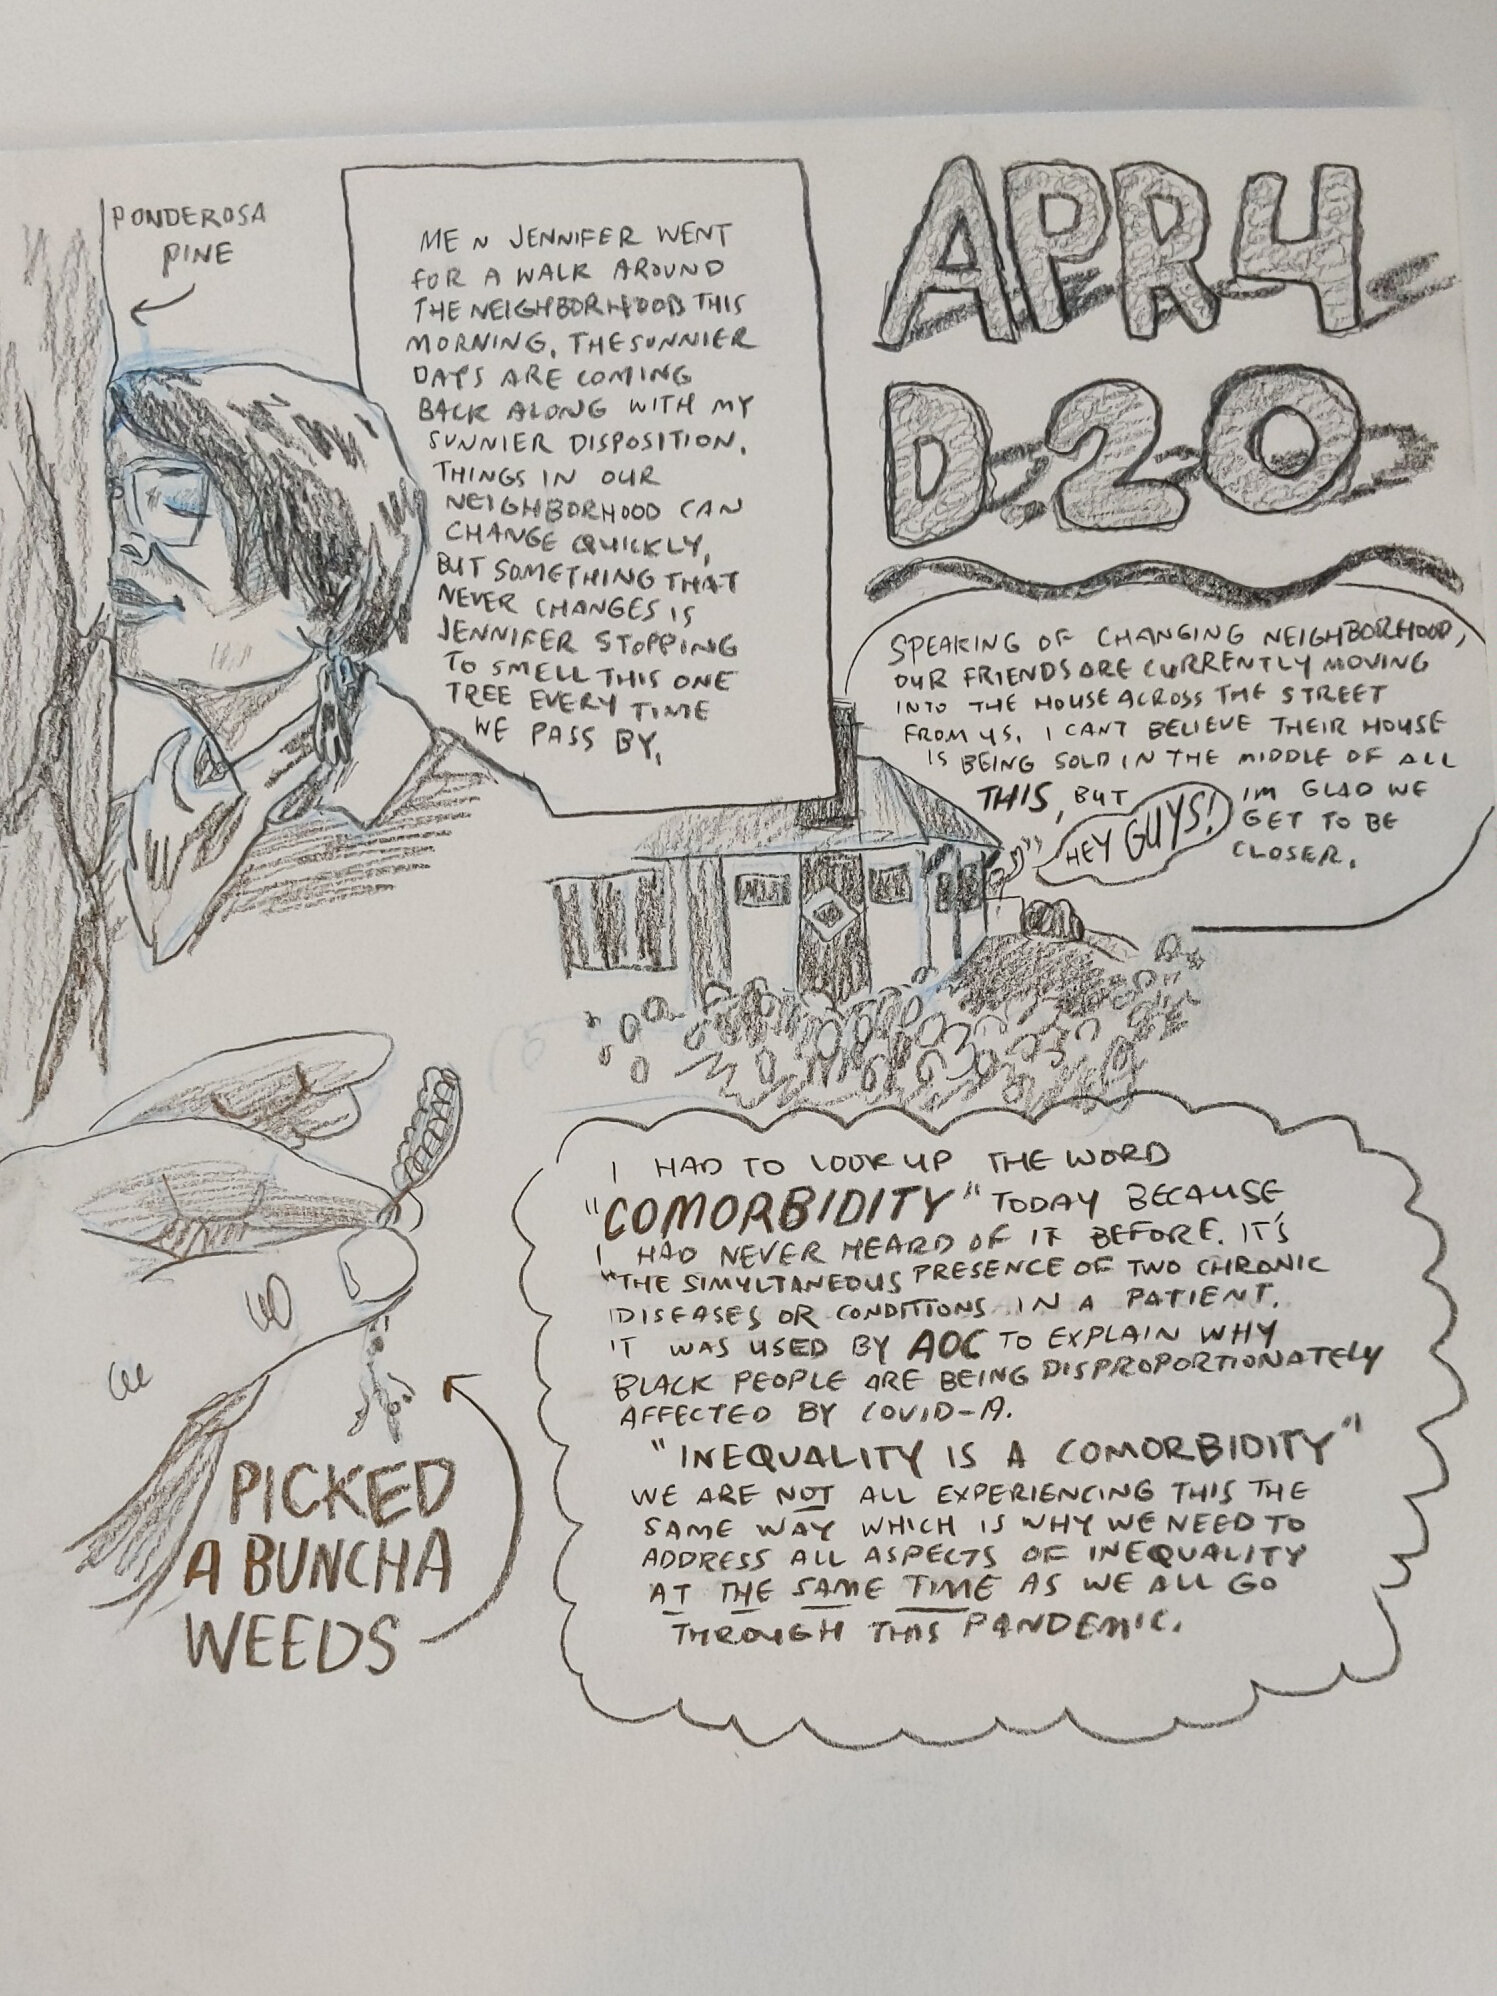 PONDEROSA
PINE
ME N JENNIFER WENT
FOR A WALK AROUND
THE NEIGHBORHOOD THIS
MORNING. THE SUNNIER
DAYS ARE COMING
BACK ALONG WITH MY
SUNNIER DISPOSITION.
THINGS IN OUR
NEIGHBORHOOD CAN
CHANGE QUICKLY,
BUT SOMETHING THAT
NEVER CHANGES IS
JENNIFER STOPPING
TO SMELL THIS ONE
TREE EVERY TIME
WE PASS BY.
APR 4
D20
SPEAKING OF CHANGING NEIGHBORHOOD,
OUR FRIENDS ARE CURRENTLY MOVING
INTO THE HOUSE ACROSS THE STREET
FROM US. I CANT BELIEVE THEIR HOUSE
IS BEING SOLD IN THE MIDDLE OF ALL
THIS, BUT IM GLAD WE
GET TO BE
CLOSER.
HEY GUYS!
I HAD TO LOOK UP THE WORD
"COMORBIDITY" TODAY BECAUSE
I HAD NEVER HEARD OF IT BEFORE. IT'S
"THE SIMULTANEOUS PRESENCE OF TWO CHRONIC
DISEASES OR CONDITIONS IN A PATIENT.
IT WAS USED BY AOC TO EXPLAIN WHY
BLACK PEOPLE ARE BEING DISPROPORTIONATELY
AFFECTED BY COVID-19.
"INEQUALITY IS A COMORBIDITY"
WE ARE NOT ALL EXPERIENCING THIS THE
SAME WAY WHICH IS WHY WE NEED TO
ADDRESS ALL ASPECTS OF INEQUALITY
AT THE SAME TIME AS WE ALL GO
THROUGH THIS PANDEMIC.
PICKED
A BUNCHA
WEEDS